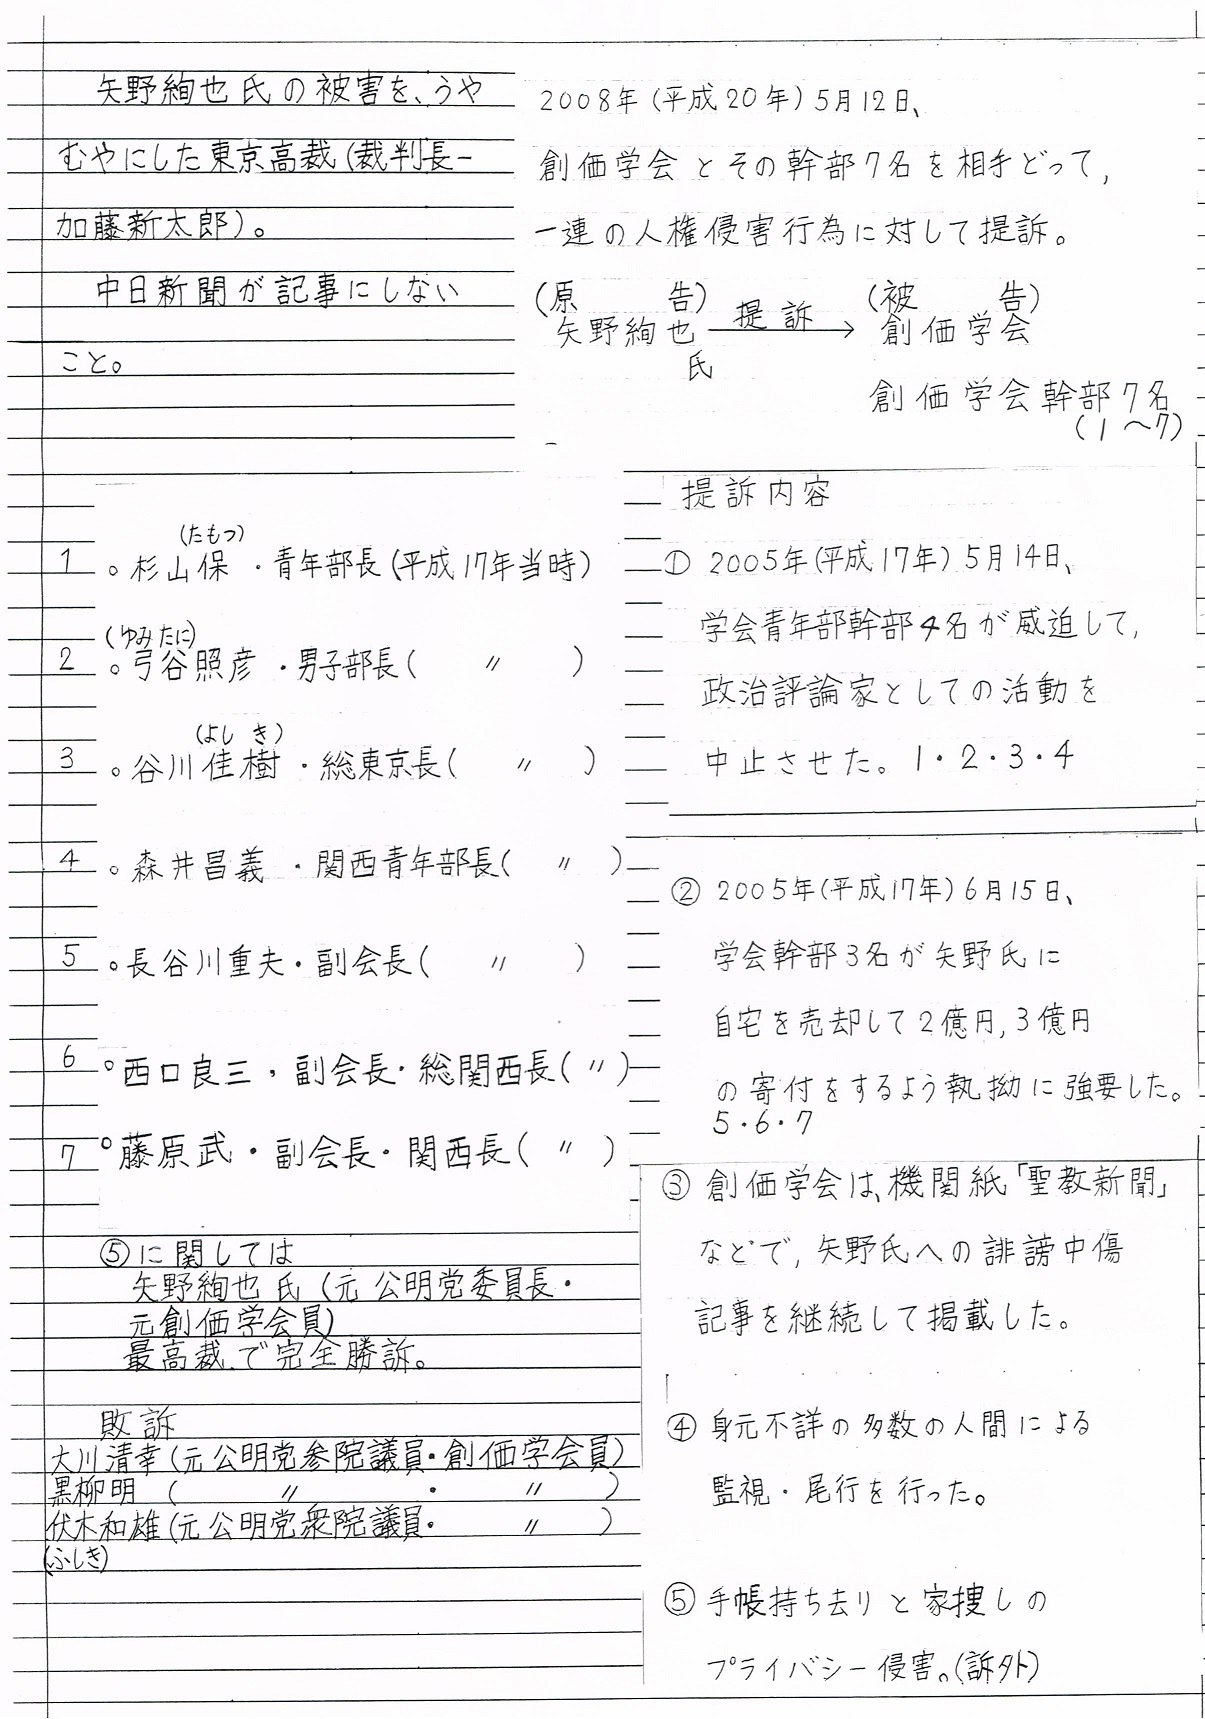 矢野絢也氏の被害を、うや
むやにした東京高裁(裁判長―
加藤新太郎)。
中日新聞が記事にしない
こと。
2008年(平成20年)5月12日、
創価学会とその幹部7名を相手どって,
一連の人権侵害行為に対して提訴。
(原　告)　(被　告)
矢野絢也　提訴　創価学会
氏
創価学会幹部7名
(1〜7)
(たもつ)
1 。杉山保・青年部長(平成17年当時)
(ゆみたに)
2 。弓谷照彦・男子部長(　〃　)
(よしき)
3 。谷川佳樹・総東京長(　〃　)
4 。森井昌義・関西青年部長(　〃　)
5 。長谷川重夫・副会長(　〃　)
6 。西口良三,副会長・総関西長(〃)
7 。藤原武・副会長・関西長(〃)
⑤に関しては
矢野絢也氏(元公明党委員長・
元創価学会員)
最高裁で完全勝訴。
敗訴
大川清幸(元公明党参院議員・創価学会員)
黒柳明　(　〃　・　〃　)
伏木和雄(元公明党衆院議員・　〃　)
(ふしき)
提訴内容
① 2005年(平成17年)5月14日、
学会青年部幹部4名が威迫して,
政治評論家としての活動を
中止させた。1・2・3・4
② 2005年(平成17年)6月15日、
学会幹部3名が矢野氏に
自宅を売却して2億円,3億円
の寄付をするよう執拗に強要した。
5・6・7
③ 創価学会は、機関紙「聖教新聞」
などで,矢野氏への誹謗中傷
記事を継続して掲載した。
④ 身元不詳の多数の人間による
監視・尾行を行った。
⑤ 手帳持ち去りと家捜しの
プライバシー侵害。(訴外)